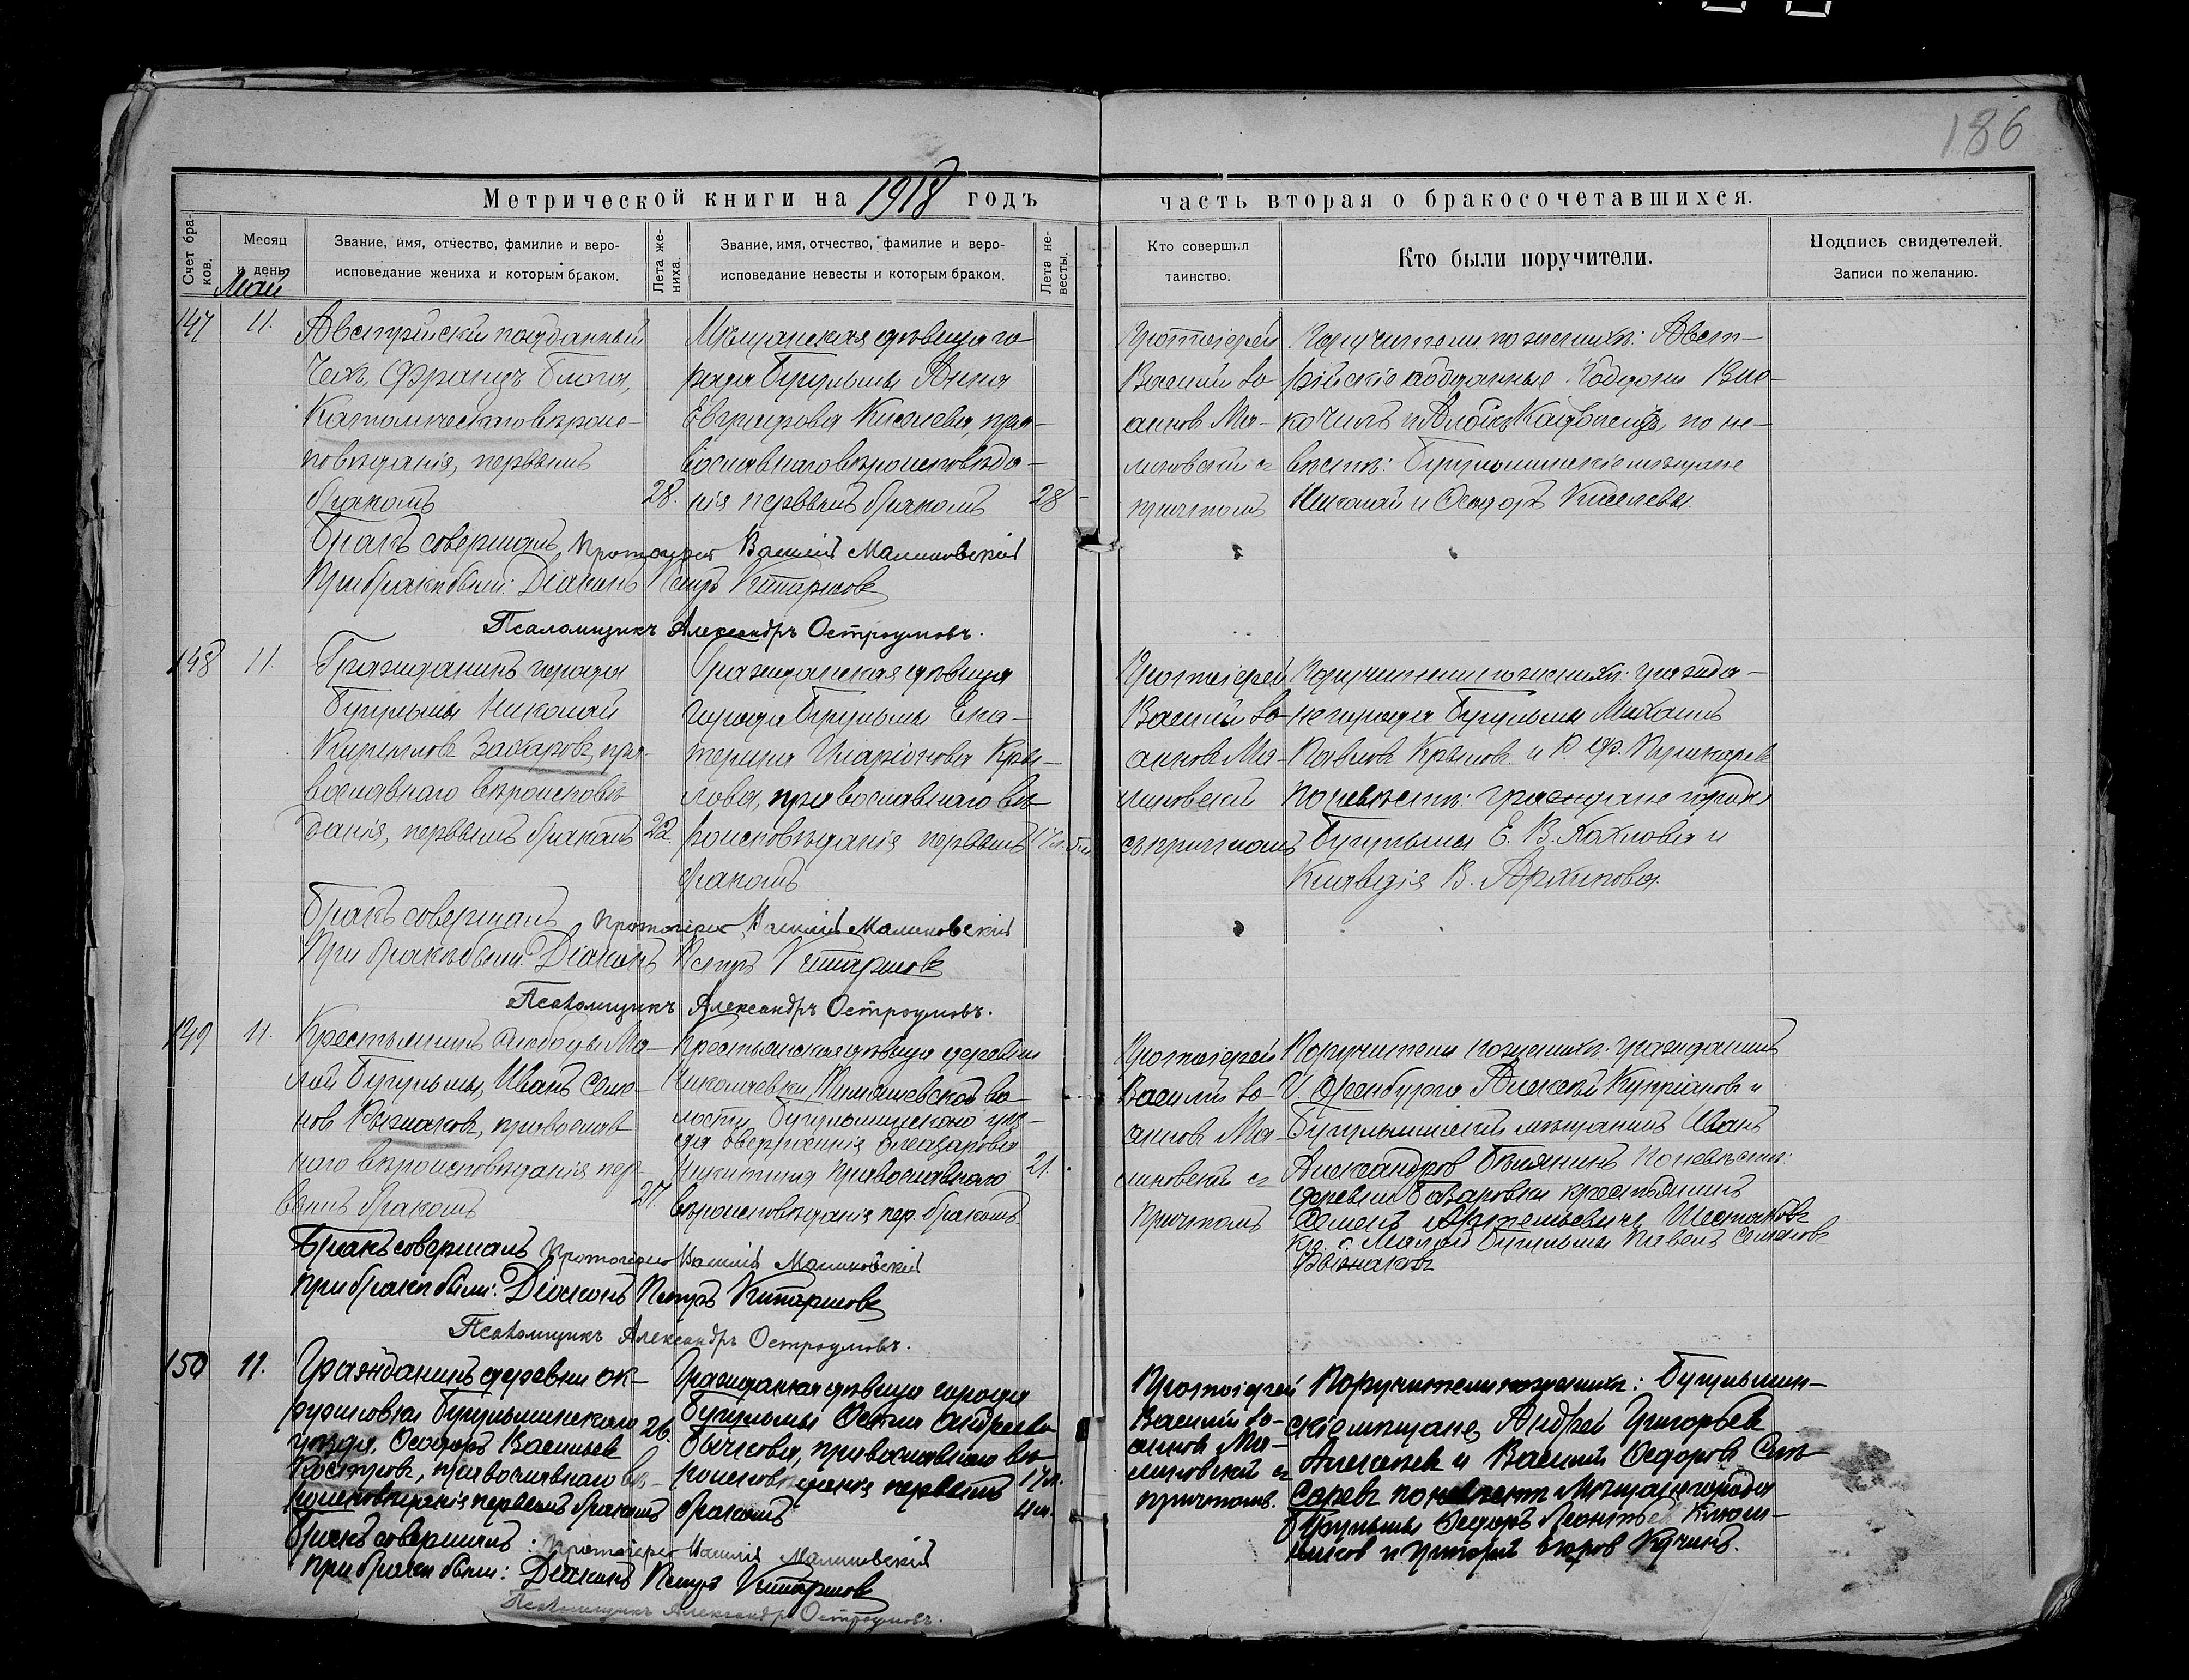 186
Метрической книги на 1918 годъ
часть вторая о бракосочетавшихся.
Счет браков.
Месяц и день.
Звание, имя, отчество, фамилие и вероисповедание жениха и которым браком.
Лета жениха.
Звание, имя, отчество, фамилие и вероисповедание невесты и которым браком.
Лета невесты.
Кто совершил таинство.
Кто были поручители.
Подпись свидетелей.
Записи по желанию.
Май
147
11.
Австрійскій подданный
Чехъ, Францъ
Католическаго вѣроис-
повѣданія, первымъ
бракомъ
28.
Мѣщанская дѣвица го-
рода Бугульмы Анна
Евграфова Киселева, пра-
вославнаго вѣроисповѣда-
нія первымъ бракомъ
28
Протоіерей
Василій Іо-
аннов Ма-
линовскій съ
причтомъ
Поручители по женихѣ: Авст-
рійскіе подданные
по не-
вѣстѣ: Бугульминскіе мѣщане
Николай и Ѳеодоръ Киселевы.
Бракъ совершалъ, Протоіерей Василій Малиновскій
При бракѣ были: Діаконъ Петръ
Псаломщикъ Александръ Остроумовъ.
148
11.
Гражданинъ города
Бугульмы Николай
Кириллов Захаров, пра-
вославнаго вѣроисповѣ-
данія, первымъ бракомъ
22.
Гражданская дѣвица
города Бугульмы Ека-
терина Иларіонова Кры-
лова, православнаго вѣ-
роисповѣданія первымъ
бракомъ
Протоіерей
Василій Іо-
аннов Ма-
линовскій
съ причтомъ
Поручители по женихѣ: гражда-
не города Бугульмы Михаилъ
Павлов Крылов и
по невѣстѣ: граждане города
Бугульмы Е. В. и
Клавдія В. Архипова.
Бракъ совершалъ Протоіерей Василій Малиновскій
При бракѣ были: Діаконъ Петръ
Псаломщикъ Александръ Остроумовъ.
149
11.
Крестьянинъ слободы Ма-
лой Бугульмы, Иванъ Семе-
нов православ-
наго вѣроисповѣданія пер-
вымъ бракомъ
27.
Крестьянская дѣвица деревни
Николаевки, во-
лости Бугульминскаго уѣз-
да
Никитина православнаго
вѣроисповѣданія пер. бракомъ
21.
Протоіерей
Василій Іо-
аннов Ма-
линовскій съ
причтомъ
Поручители по женихѣ: гражданинъ
г. Оренбурга Алексѣй Купріянов и
Бугульминскій мѣщанинъ Иванъ
Александров по невѣстѣ:
деревни крестьянинъ
Шестаков
кр. с. Малой Бугульмы Павелъ Семенов
Бракъ совершалъ Протоіерей Василій Малиновскій
При бракѣ были: Діаконъ Петръ
Псаломщикъ Александръ Остроумовъ.
150
11.
Гражданинъ деревни
Бугульминскаго
уѣзда, Ѳеодоръ Васильев
Костров, православнаго вѣ-
роисповѣданія первымъ бракомъ
26.
Гражданская дѣвица города
Бугульмы Андреева
Бычкова, православнаго вѣ-
роисповѣданія первымъ
бракомъ
17 л.
Протоіерей
Василій Іо-
аннов Ма-
линовскій съ
причтомъ.
Поручители по женихѣ: Бугульмин-
скіе мѣщане, Андрей Григорьев
Алексѣев и Василій Ѳедоров
по невѣстѣ Мѣщане города
Бугульмы Ѳедоръ Леонтьев
и Григорій
Бракъ совершалъ: Протоіерей Василій Малиновскій
При бракѣ были: Діаконъ Петръ
Псаломщикъ Александръ Остроумовъ.